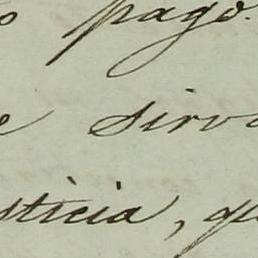 o pago.
e sirva
sticia, qu